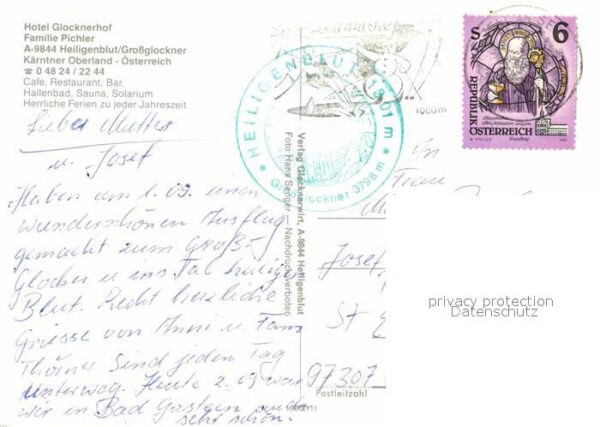 Hotel Glocknerhof
Familie Pichler
A-9844 Heiligenblut/Großglockner
Kärntner Oberland - Österreich
☎ 0 48 24 / 22 44
Cafe, Restaurant, Bar,
Hallenbad, Sauna, Solarium
Herrliche Ferien zu jeder Jahreszeit
Lieber Mutter
u. Josef
Haben am 1.09. einen
wunderschönen Ausflug
gemacht zum Groß-
Glocker u ins Tal heilige
Blut. Recht herzliche
Grüsse von Anni u. Fam
Thörner Sind jeden Tag
unterweg. Heute 2.09 war
wir in Bad Gastein
sehr schön.
HEILIGENBLUT 1301 m
Großglockner 3798 m
Verlag Glocknerwirt, A-9844 Heiligenblut
Foto Hans Senger — Nachdruck verboten
S 6
REPUBLIK
ÖSTERREICH
An
Frau
Josef
St
97307
Postleitzahl
privacy protection
Datenschutz